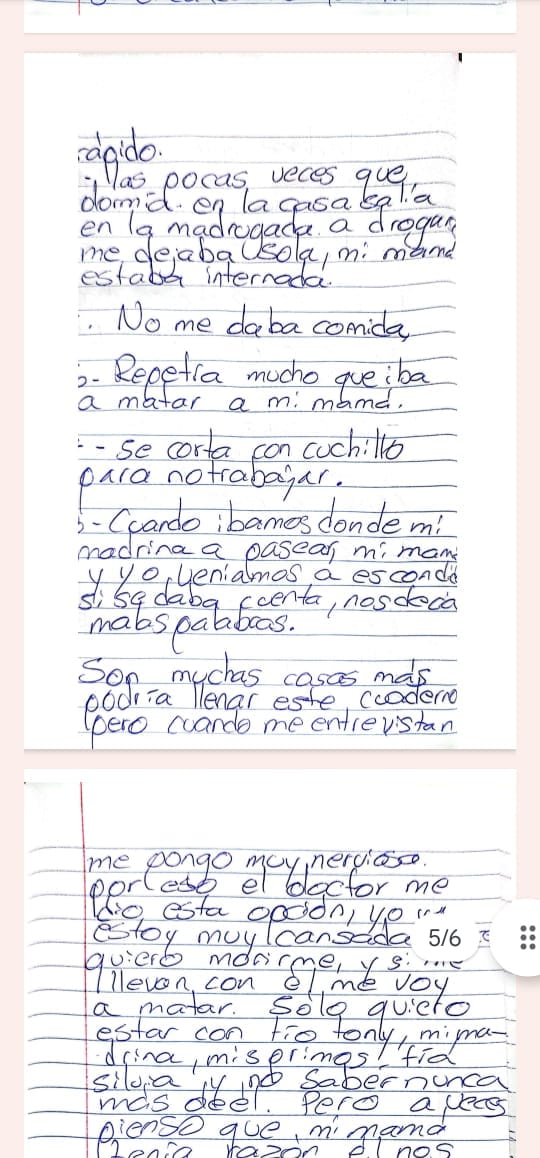 rápido.
- las pocas veces que
dormía en la casa salía
en la madrugada a drogar
me dejaba sola, mi mamá
estaba internada.
. No me daba comida,
- Repetía mucho que iba
a matar a mi mamá.
- Se corta con cuchillo
para no trabajar.
- Cuando ibamos donde mi
madrina a pasear, mi mam
y yo, veniamos a escondi
si se daba cuenta, nos decia
malas palabras.
Son muchas cosas más
podría llenar este cuaderno
pero cuando me entrevistan
me pongo muy nerviosa.
por eso el doctor me
dio esta opción, yo
estoy muy cansada
5/6
quiero morirme, y si me
llevan con él me voy
a matar. Solo quiero
estar con tio tony, mi ma-
drina, mis primos, tía
silvia y no saber nunca
más de él. Pero a veces
pienso que mi mamá
tenía razón